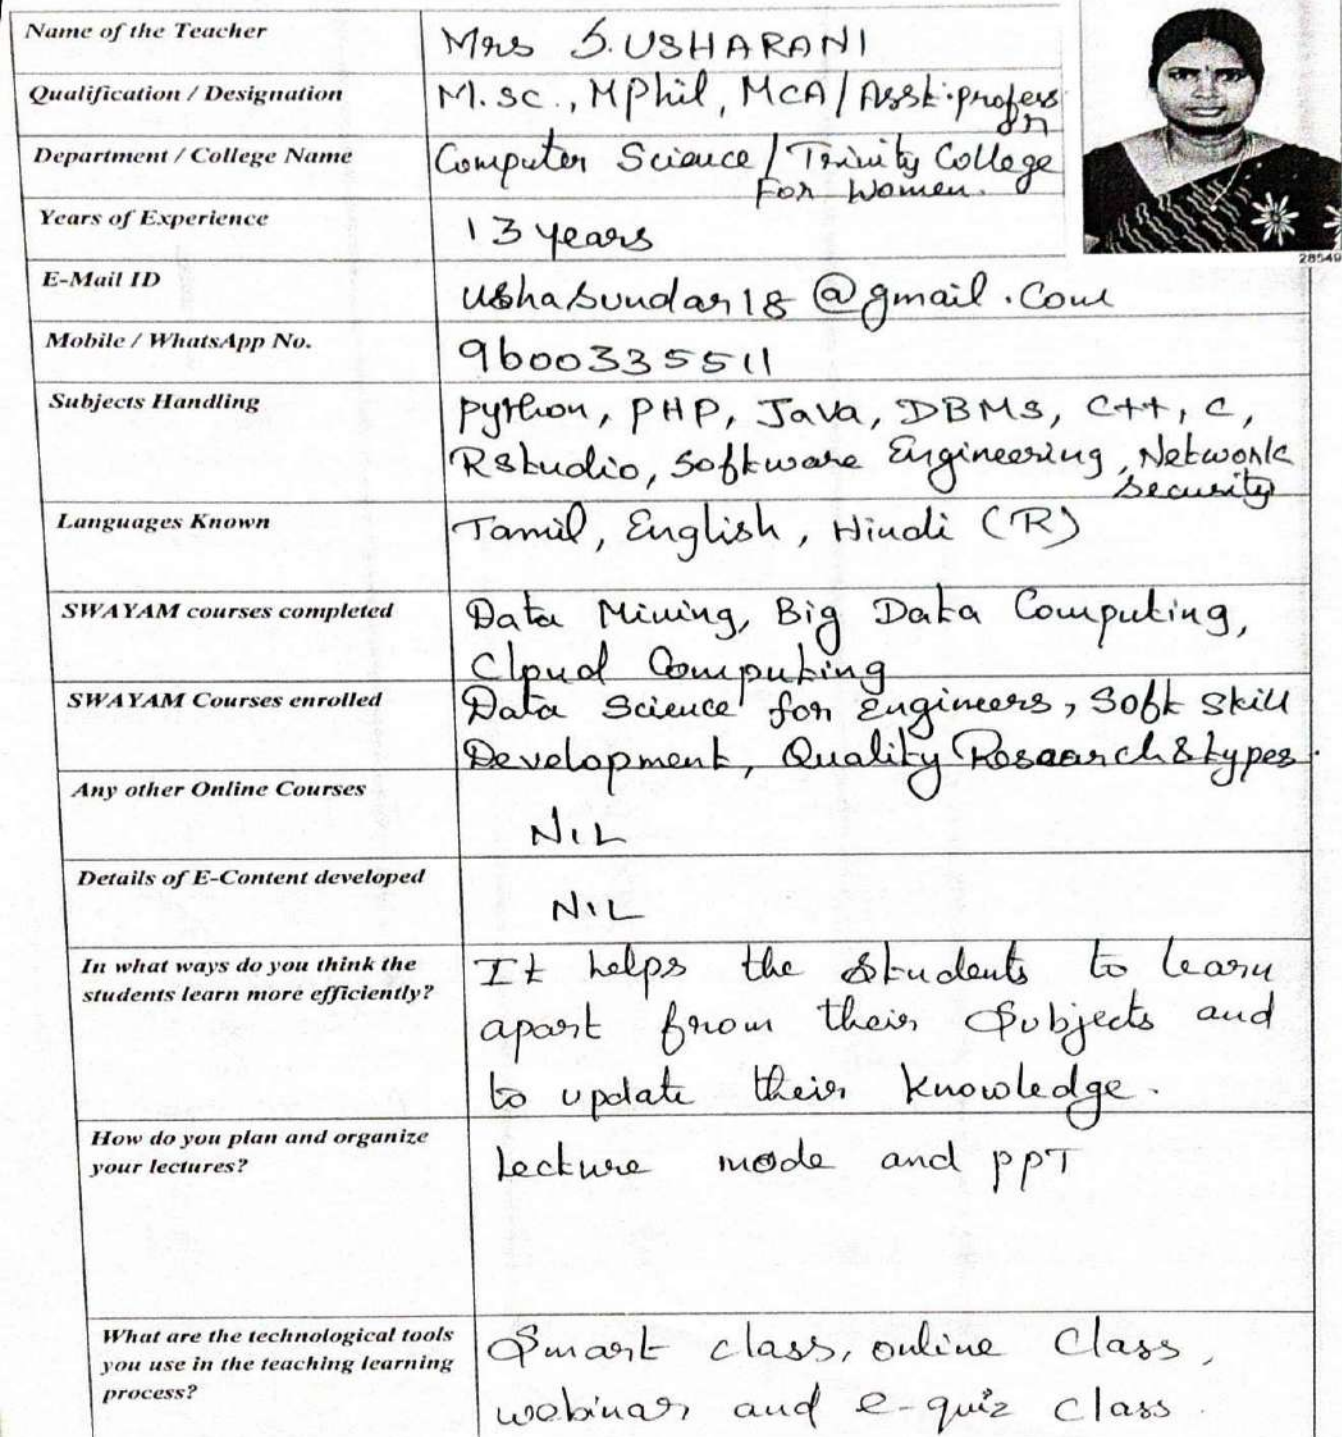 Name of the Teacher
Mrs S. USHARANI
Qualification / Designation
M.sc., MPhil, MCA / Asst.profess
or
Department / College Name
Computer Science / Trinity College
For Women.
Years of Experience
13 years
28549
E-Mail ID
ushasundar18@gmail.com
Mobile / WhatsApp No.
9600335511
Subjects Handling
python, PHP, Java, DBMS, C++, C,
RStudio, Software Engineering, Network
Security
Languages Known
Tamil, English, Hindi (R)
SWAYAM courses completed
Data Mining, Big Data Computing,
Cloud Computing
SWAYAM Courses enrolled
Data Science for Engineers, Soft Skill
Development, Quality Research & types.
Any other Online Courses
NIL
Details of E-Content developed
NIL
In what ways do you think the
students learn more efficiently?
It helps the Students to learn
apart from their Subjects and
to update their knowledge.
How do you plan and organize
your lectures?
Lecture mode and ppT
What are the technological tools
you use in the teaching learning
process?
Smart class, online Class,
webinar and e-quiz class.